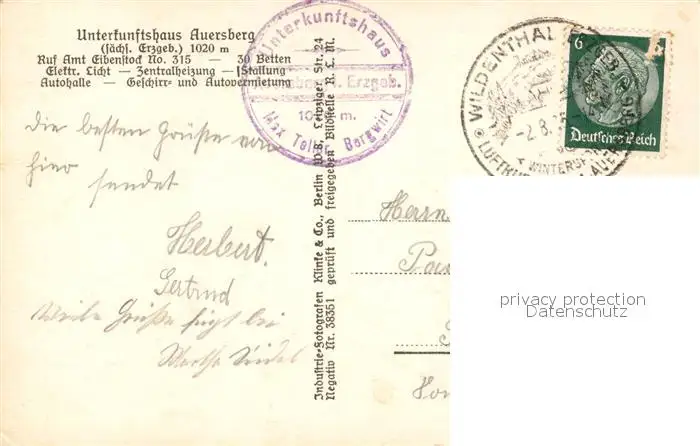 Unterkunftshaus Auersberg
(sächs. Erzgeb.) 1020 m
Ruf Amt Eibenstock No. 315 — 30 Betten
Elektr. Licht — Zentralheizung — Stallung
Autohalle — Geschirr- und Autovermietung
Unterkunftshaus
Erzgeb.
m.
Max Bergwirt
WILDENTHAL
-2.8.
WINTERSP
6
Deutsches Reich
Die besten Grüße von
hier sendet
Herbert.
Gertrud
Grüße fügt bei
Martha Seidel
Industrie-Fotografen Klinke & Co., Berlin W 8, Leipziger Str. 24
Negativ Nr. 38351 geprüft und freigegeben Bildstelle R. L. M.
Herrn
privacy protection
Datenschutz